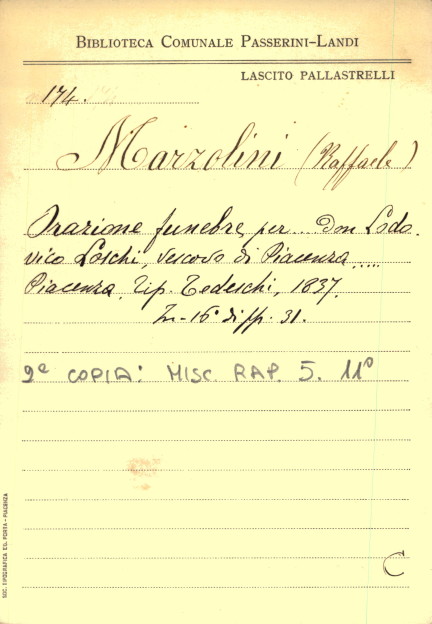 BIBLIOTECA COMUNALE PASSERINI-LANDI
LASCITO PALLASTRELLI
174.
Marzolini (Raffaele)
Orazione funebre per... Don Lodo-
vico Loschi, vescovo di Piacenza.....
Piacenza, Tip. Tedeschi, 1837.
In-16° di pp. 31.
2ª COPIA: MISC. RAP. 5. 11°
C
SOC. TIPOGRAFICA ED. PORTA - PIACENZA